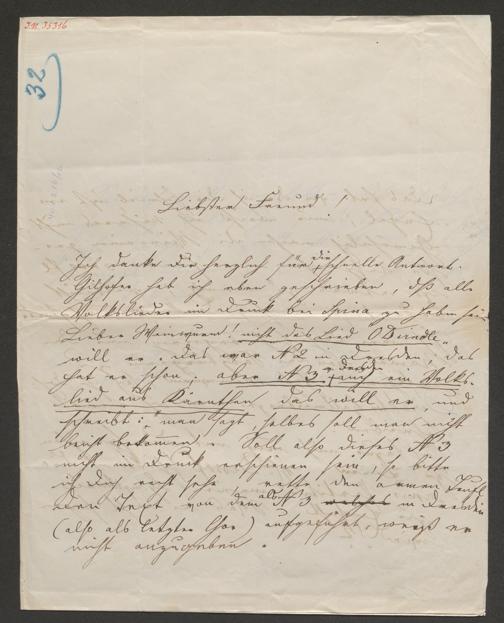 I.N. 35316
32
Liebster Freund!
Ich danke Dir herzlich für die schnelle Antwort.
hab ich eben geschrieben, dß alle
Volkslieder im Druck bei Spina zu haben sein
Lieber Weinwurm! nicht das Lied O Dirndle
will er. das war N 2 in Dresden, das
hat er schon, aber N 3 in Dresden auch ein Volks-
lied aus Kärnthen das will er, und
schreibt: "man sagt, selbes soll man nicht
bekommen. Soll also dieses N 3
nicht im Druck erschienen sein, so bitte
ich Dich recht sehr rette den armen Teufl
Den Text von dem als N 3 welches in Dresden
(also als letzter Chor) aufgeführt, weiß er
nicht anzugeben.